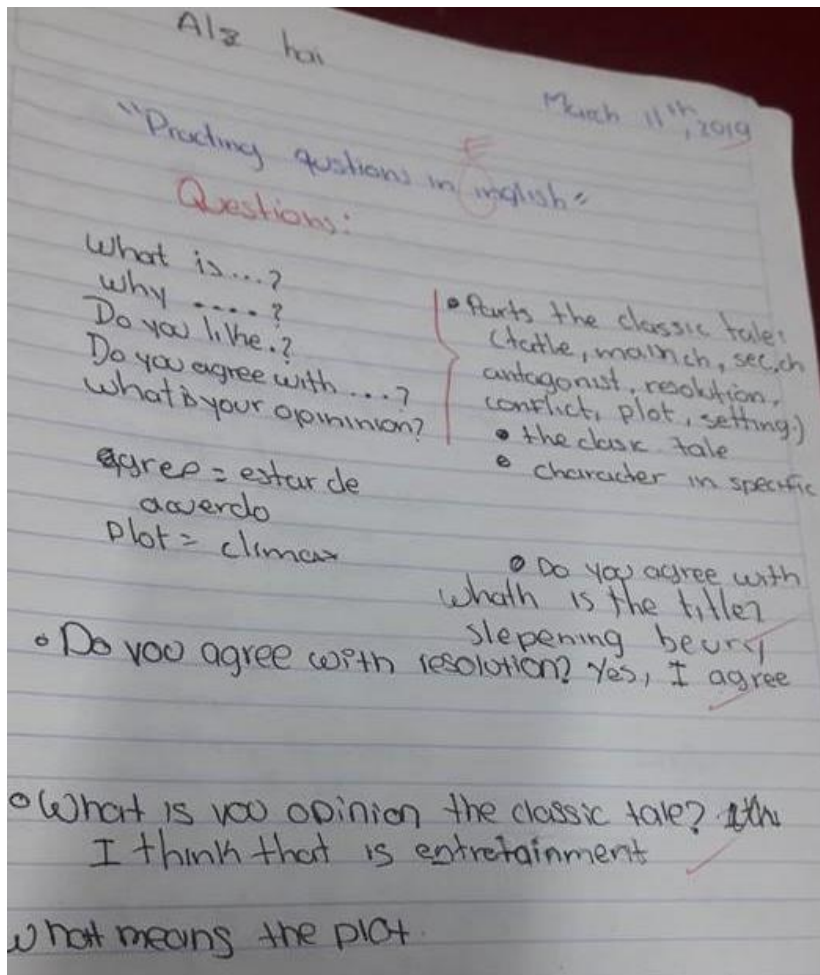 Alz hai
March 11th, 2019
"Practing qustions in inglish"
E
Questions:
What is...?
Why ....?
Do you like.?
Do you agree with ...?
What is your opininion?
• Parts the classic tale:
(tatle, main ch, sec, ch
antagonist, resolution,
conflict, plot, setting.)
• the clasic tale
• character in specific
agree = estar de
acuerdo
Plot = climax
• Do you agree with
Whath is the title?
slepening
• Do you agree with resolution? Yes, I agree
• What is you opinion the classic tale?
I think that is entretainment
What means the plot.